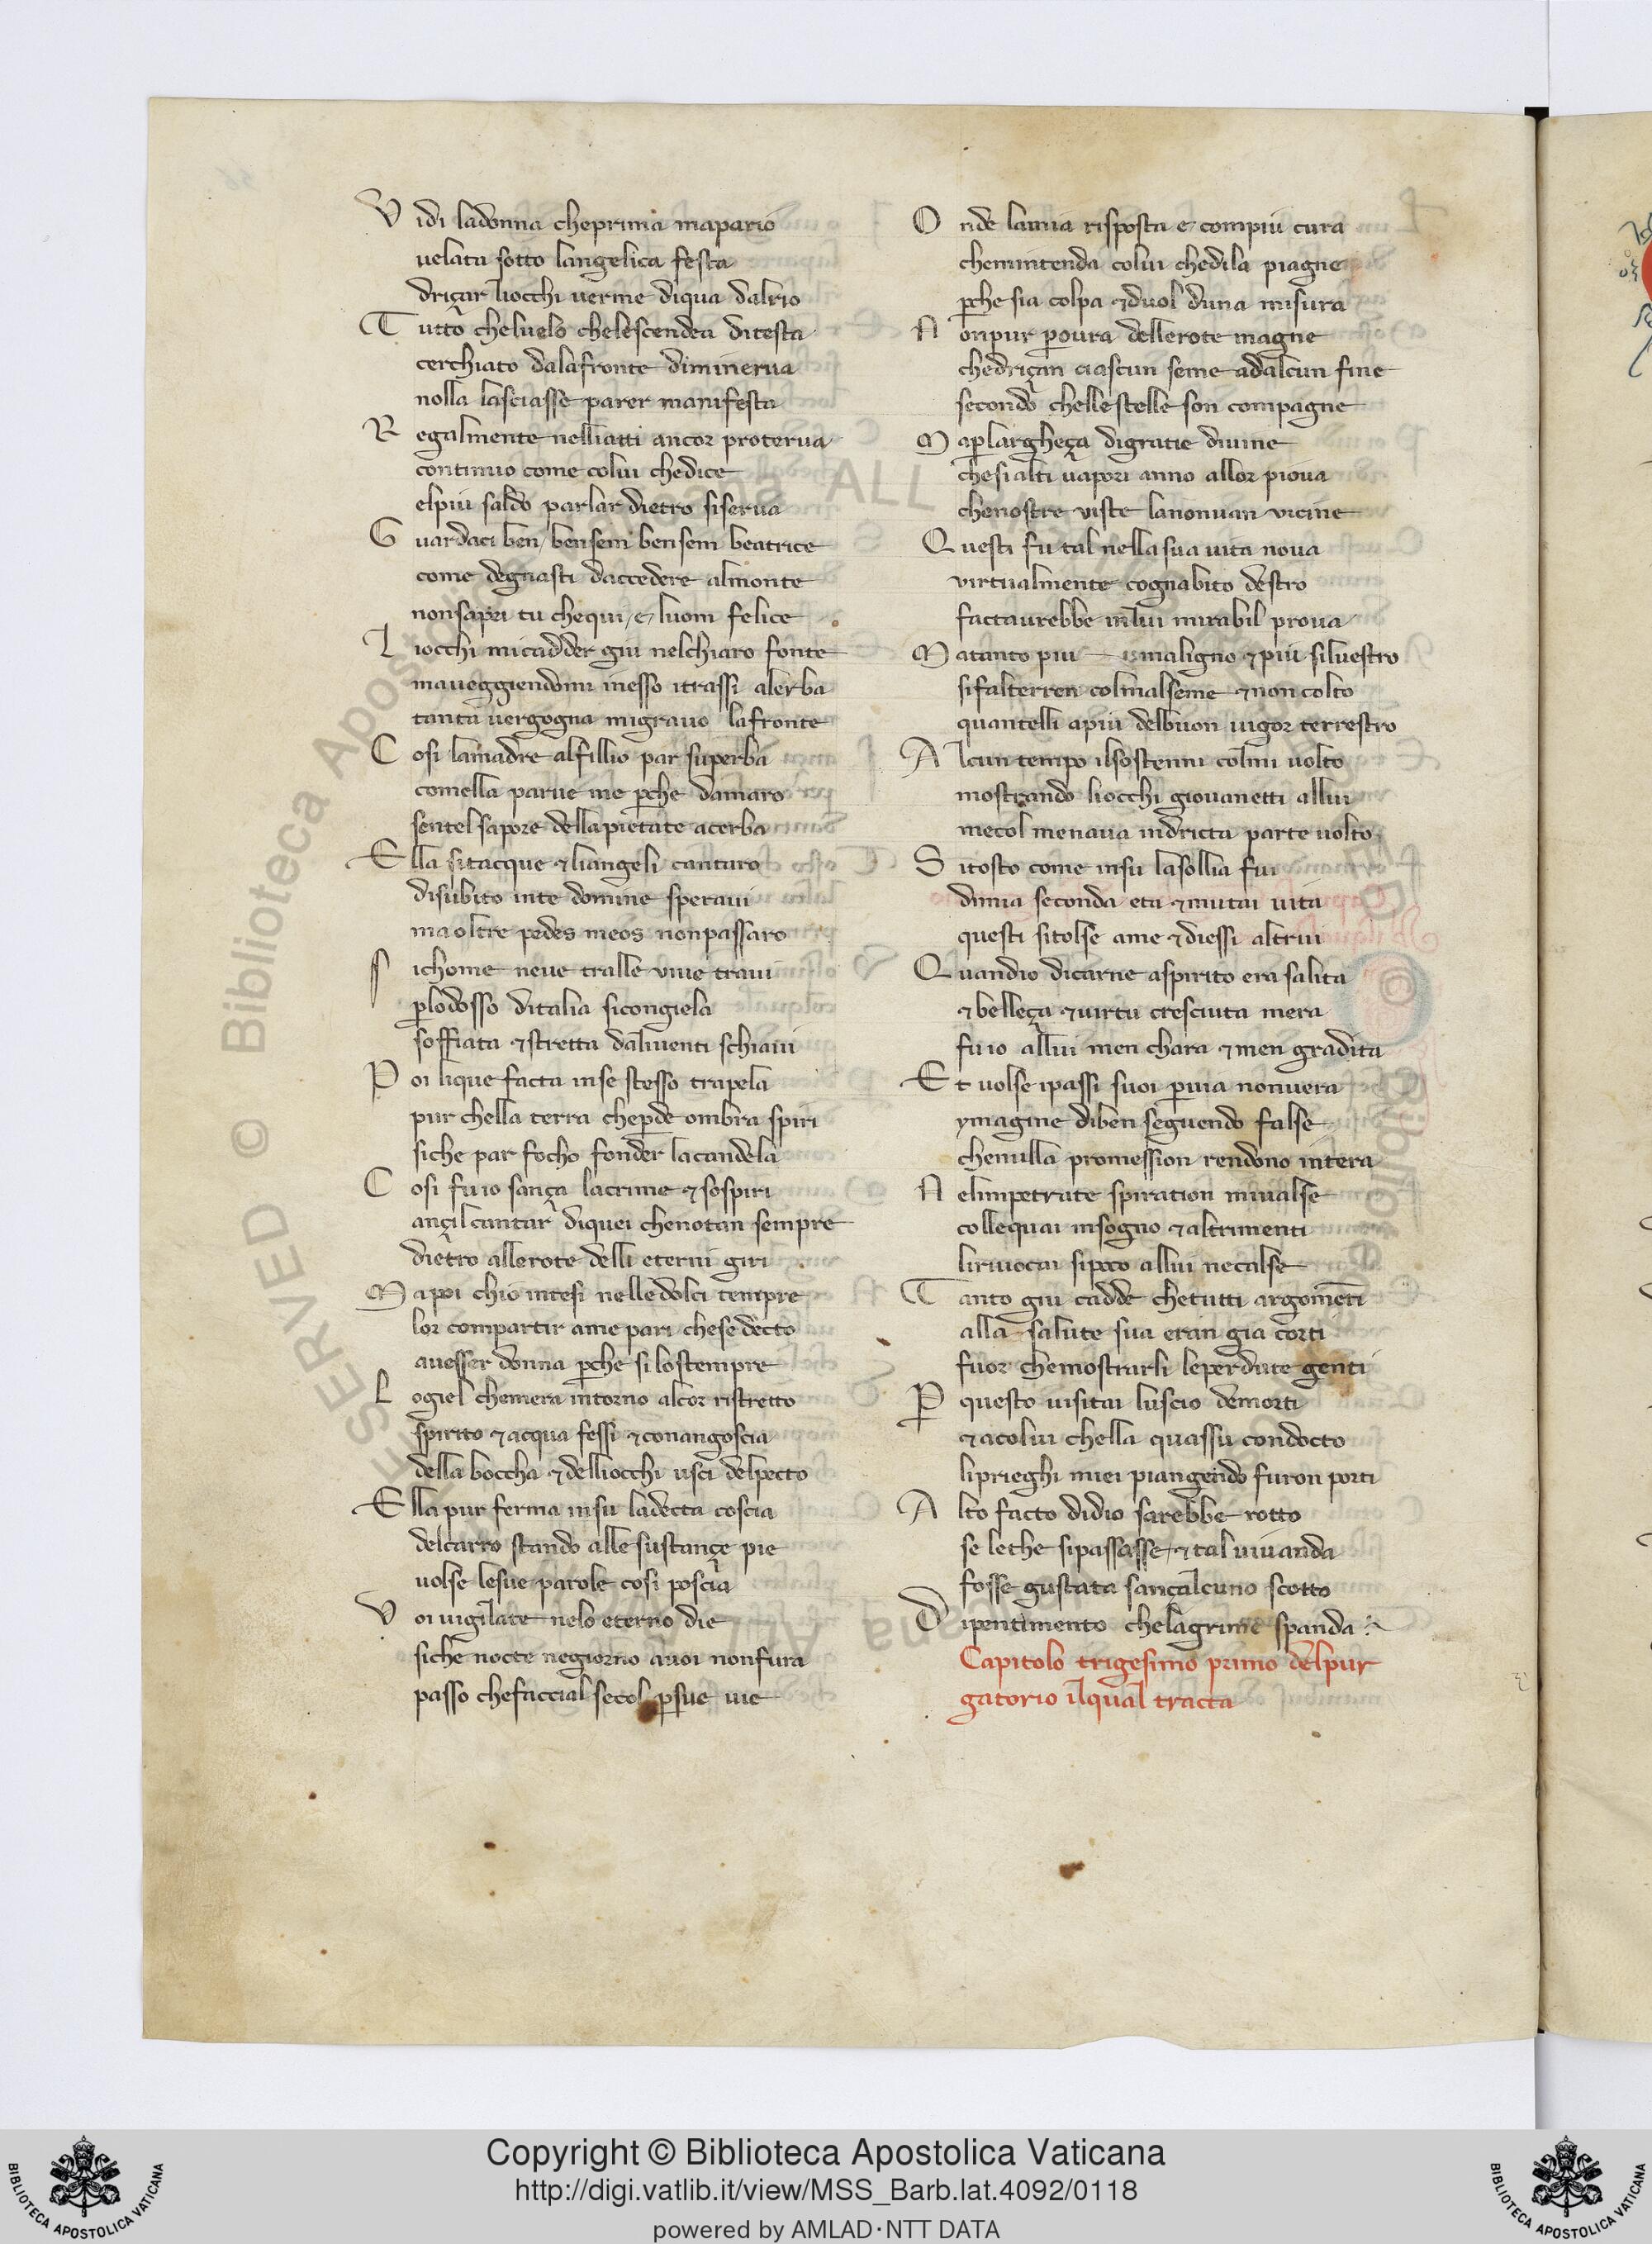 Vidi ladonna cheprima mapario
uelata sotto langelica festa
driçar liocchi uerme diqua dalrio
Tutto cheluelo chelescendea ditesta
cerchiato dalafronte diminerua
nolla lasciasse parer manifesta
Regalmente nelliatti ancor proterua
continuo come colui chedice
elpiu saldo parlar dietro siserua
Guardaci ben / bensem bensem beatrice
come degnasti daccedere almonte
nonsapei tu chequi / e luom felice
Liocchi micadder giu nelchiaro fonte
maueggiendomi inesso itrassi alerba
tanta uergogna migrauo lafronte
Cosi lamadre alfillio par superba
comella parue me perche damaro
sentel sapore dellapietate acerba
Ella sitacque et liangeli cantaro
disubito inte domine speraui
maoltre pedes meos nonpassaro
Sichome neue tralle uiue traui
perlodosso ditalia sicongiela
soffiata et stretta daliuenti schiaui
Poi liquefacta inse stesso trapela
pur chella terra cheperde ombra spiri
siche par focho fonder lacandela
Cosi fuio sança lacrime et sospiri
ançilcantar diquei chenotan sempre
dietro allerote delli eterni giri
Mapoi chio intesi nelledolci tempre
lor compartir ame pari chese decto
auesser donna perche si lostempre
Logiel chemera intorno alcor ristretto
spirito et acqua fessi et conangoscia
della boccha et delliocchi usci delpecto
Ella pur ferma insu ladetta coscia
delcarro stando alle sustançe pie
uolse lesue parole cosi poscia
Voi uigilate nelo eterno die
siche nocte negiorno auoi nonfura
passo chefaccial secol persue uie
Onde lamia risposta e compiu cura
chemintenda colui chedila piagne
perche sia colpa et duol duna misura
Nonpur peroura dellerote magne
chedriçan ciascun seme adalcun fine
secondo chellestelle son compagne
Maperlargheça digratie diuine
chesialti uapori anno allor pioua
chenostre uiste lanonuan uicine
Questi fu tal nellasua uita noua
uirtualmente cognabito destro
factaurebbe inlui mirabil proua
Matanto piu maligno et piu siluestro
sifalterren colmalseme et non colto
quantelli apiu delbuon uigor terrestro
Alcun tempo ilsostenni colmi uolto
mostrando liocchi giouanetti allui
mecol menaua indricta parte uolto
Sitosto come insu lasollia fui
dimia seconda eta et mutai uita
questi sitolse ame et diessi altrui
Quandio dicarne aspirito era salita
et belleça et uirtu cresciuta mera
fuio allui men chara et men gradita
Et uolse ipassi suoi peruia nonuera
ymagine diben seguendo false
chenulla promession rendono intera
Nelimpetrate spiration miualse
collequai insogno et altrimenti
liriuocai sipoco allui necalse
Tanto giu cadde chetutti argomenti
alla salute sua eran gia corti
fuor chemostrarli leperdute genti
Per questo uisitai luscio demorti
et acolui chella quassu condocto
liprieghi miei piangendo furon porti
Alto facto didio sarebbe rotto
se lethe sipassasse et tal uiuanda
fosse gustata sançalcuno scotto
Dipentimento chelagrime spanda
Capitolo trigesimo primo delpur
gatorio ilqual tracta
Copyright © Biblioteca Apostolica Vaticana
http://digi.vatlib.it/view/MSS_Barb.lat.4092/0118
powered by AMLAD·NTT DATA
BIBLIOTECA APOSTOLICA VATICANA
BIBLIOTECA APOSTOLICA VATICANA